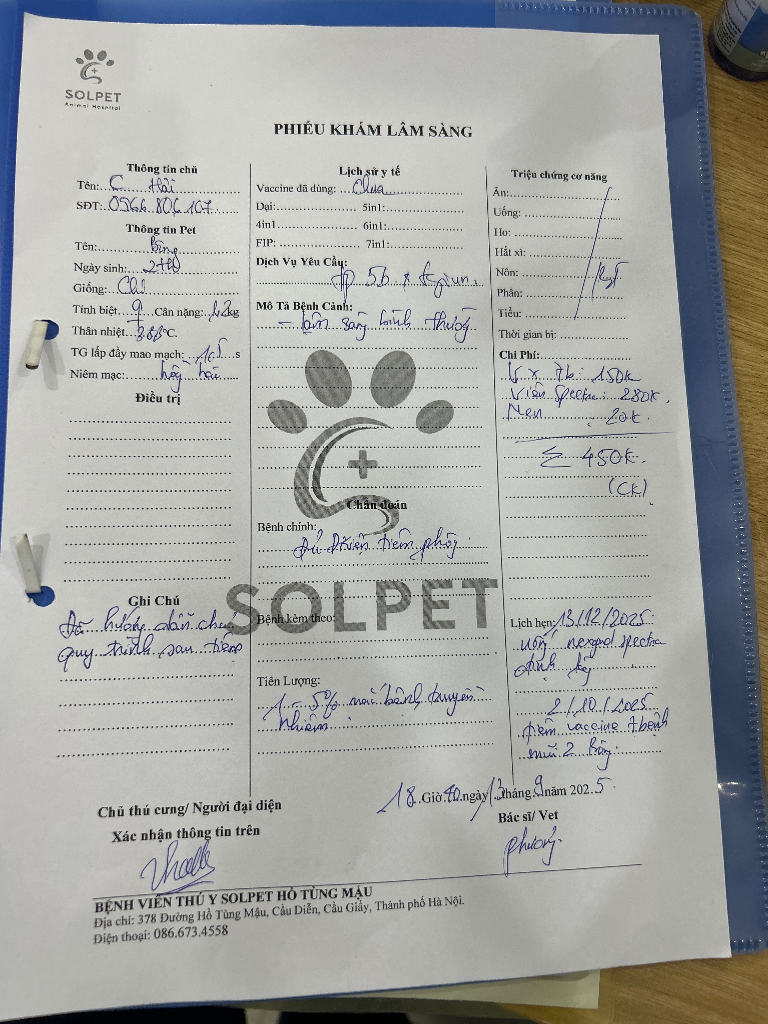 SOLPET
Animal Hospital
PHIẾU KHÁM LÂM SÀNG
Thông tin chủ
Tên: C Hải
SĐT: 0566 806 107
Thông tin Pet
Tên: Bông
Ngày sinh: 2th
Giống: Chó
Tính biệt: ♀ Cân nặng: 1,2kg
Thân nhiệt: 38.8°C.
TG lấp đầy mao mạch: 1.5 s
Niêm mạc: hồng hào
Điều trị
Ghi Chú
Đã hướng dẫn chủ
quy trình sau tiêm
Lịch sử y tế
Vaccine đã dùng: Chưa
Dại: 5in1:
4in1 6in1:
FIP: 7in1:
Dịch Vụ Yêu Cầu:
5b giun.
Mô Tả Bệnh Cảnh:
- lâm sàng bình thường
Chẩn đoán
Bệnh chính:
Đủ Đ.kiện tiêm phòng
SOLPET
Bệnh kèm theo:
Tiên Lượng:
1 - 5% mắc bệnh truyền
nhiễm
Triệu chứng cơ năng
Ăn:
Uống:
Ho:
Hắt xì:
Nôn:
Phân:
Tiểu:
Thời gian bị:
Chi Phí:
V x 7b: 150k
Viên Spectra: 280k
Men : 20k.
Σ 450k.
(CK)
Lịch hẹn: 13/12/2025
uống nexgard spectra
định kỳ
2/10/2025
tiêm vaccine 7 bệnh
mũi 2 Bông.
18 Giờ 40 ngày 13 tháng 9 năm 2025.
Chủ thú cưng/ Người đại diện
Xác nhận thông tin trên
Bác sĩ/ Vet
Phương
BỆNH VIỆN THÚ Y SOLPET HỒ TÙNG MẬU
Địa chỉ: 378 Đường Hồ Tùng Mậu, Cầu Diễn, Cầu Giấy, Thành phố Hà Nội.
Điện thoại: 086.673.4558